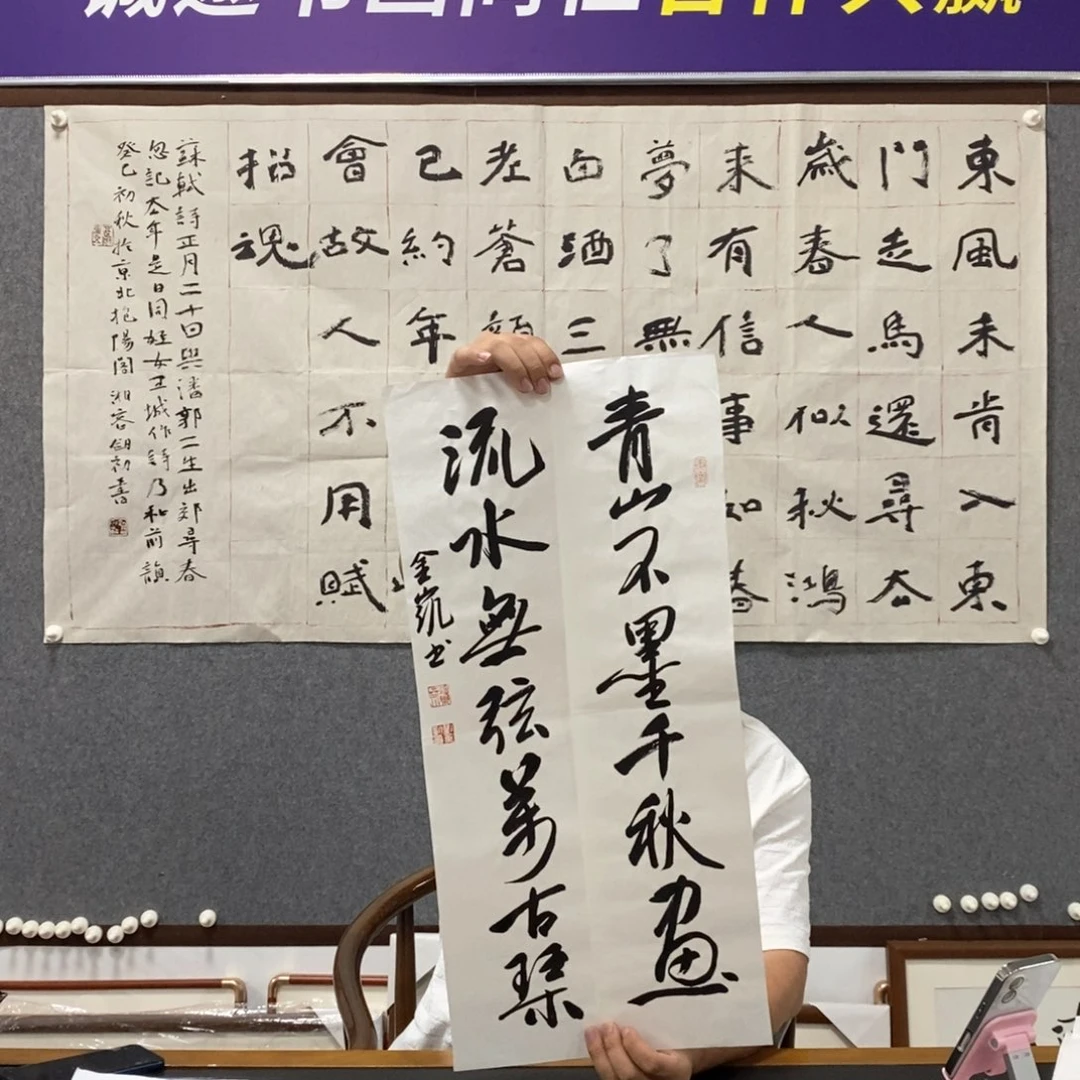 诚邀书画同仁合作共赢
東風未肯入東
門走馬還尋去
歲春人似秋鴻
来有信事如春
夢了無
白酒三
老蒼顏
已約年
會故人不用賦
招魂
蘇軾詩正月二十日與潘郭二生出郊尋春
忽記去年是日同至女王城作詩乃和前韻
癸巳初秋於京北抱陽閣
青山不墨千秋畫
流水無弦萬古琴
金凱书